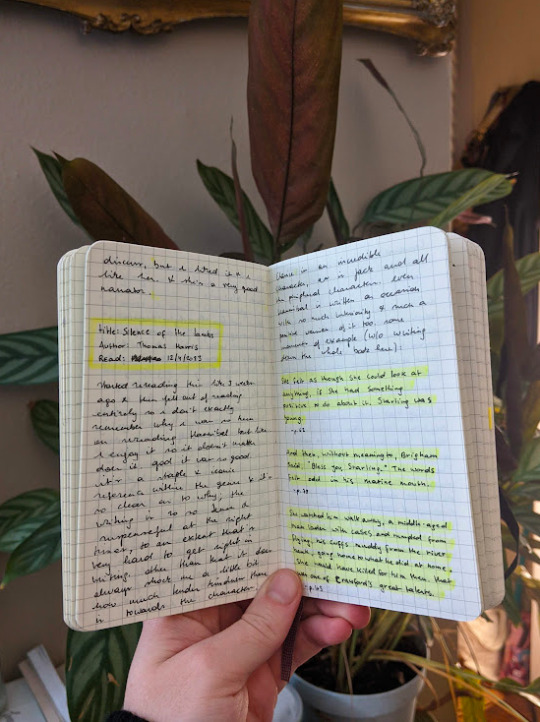 discuss, but i liked it & i
like her. & she's a very good
narrator.
title: Silence of the Lambs
Author: Thomas Harris
Read: 12/4/2023
started rereading this like 3 weeks
ago & then fell out of reading
entirely so i don't exactly
remember why i was so keen
on rereading Hannibal but hey
i enjoy it so it doesn't matter
does it good it was so good.
it's a staple & iconic
reference within the genre & it's
so clear as to why; the
writing is so so tense &
suspenseful at the right
times, to an extent that's
very hard to get right in
writing. other than that it does
always shock me a little bit
how much tender kindness there
is towards the characters
is an incredible
character, as in fact are all
the peripheral characters. even
Hannibal is written on occasion
with so much interiority & such a
human warmth of it too. some
moments of example (w/o writing
down the whole book here):
She felt as though she could look at
anything, if she had something
positive to do about it. Starling was
young.
And then, without meaning to, Brigham
said, "Bless you, Starling." The words
felt odd in his marine mouth.
She watched him walk away, a middle-aged
man laden with cases and rumpled from
flying, his cuffs muddy from the river-
bank, going home to what he did at home.
She would have killed for him then. That
was one of Crawford's great talents.